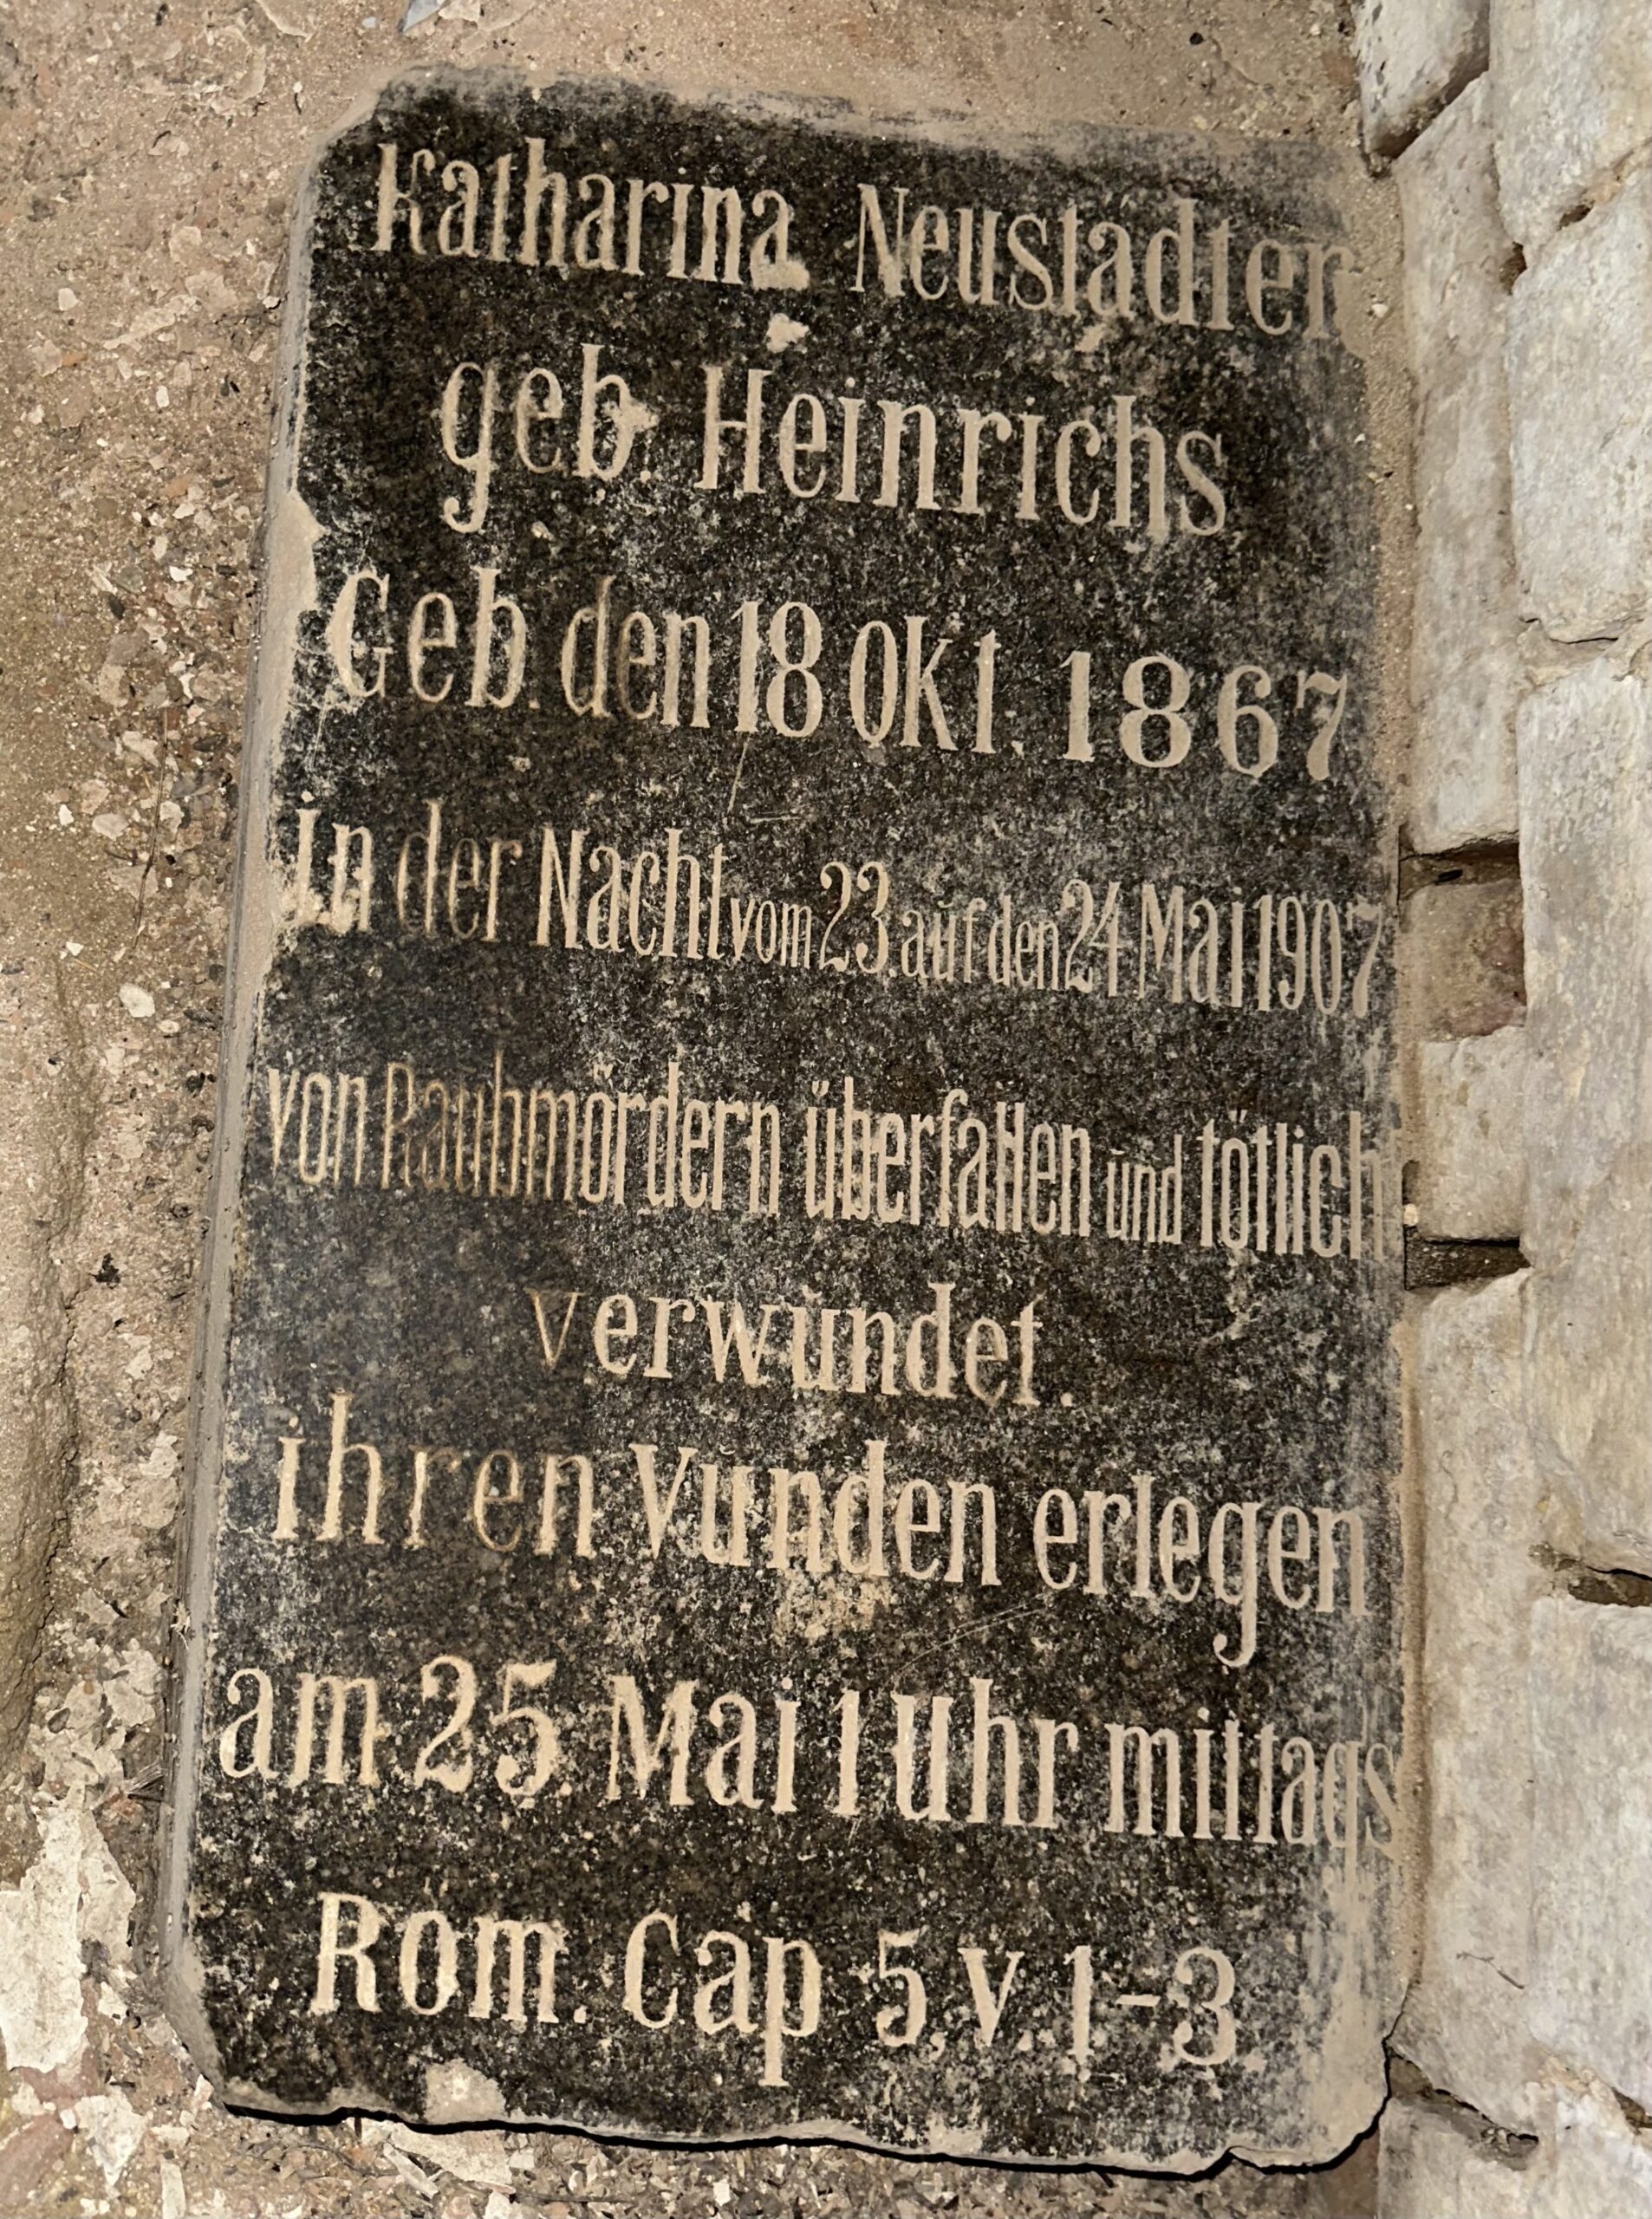 Katharina Neustädter
geb. Heinrichs
Geb. den 18 Okt. 1867
in der Nacht vom 23. auf den 24 Mai 1907
von Raubmördern überfallen und tötlich
verwundet.
ihren Vunden erlegen
am 25. Mai 1 Uhr mittags
Rom. Cap 5, V. 1-3.